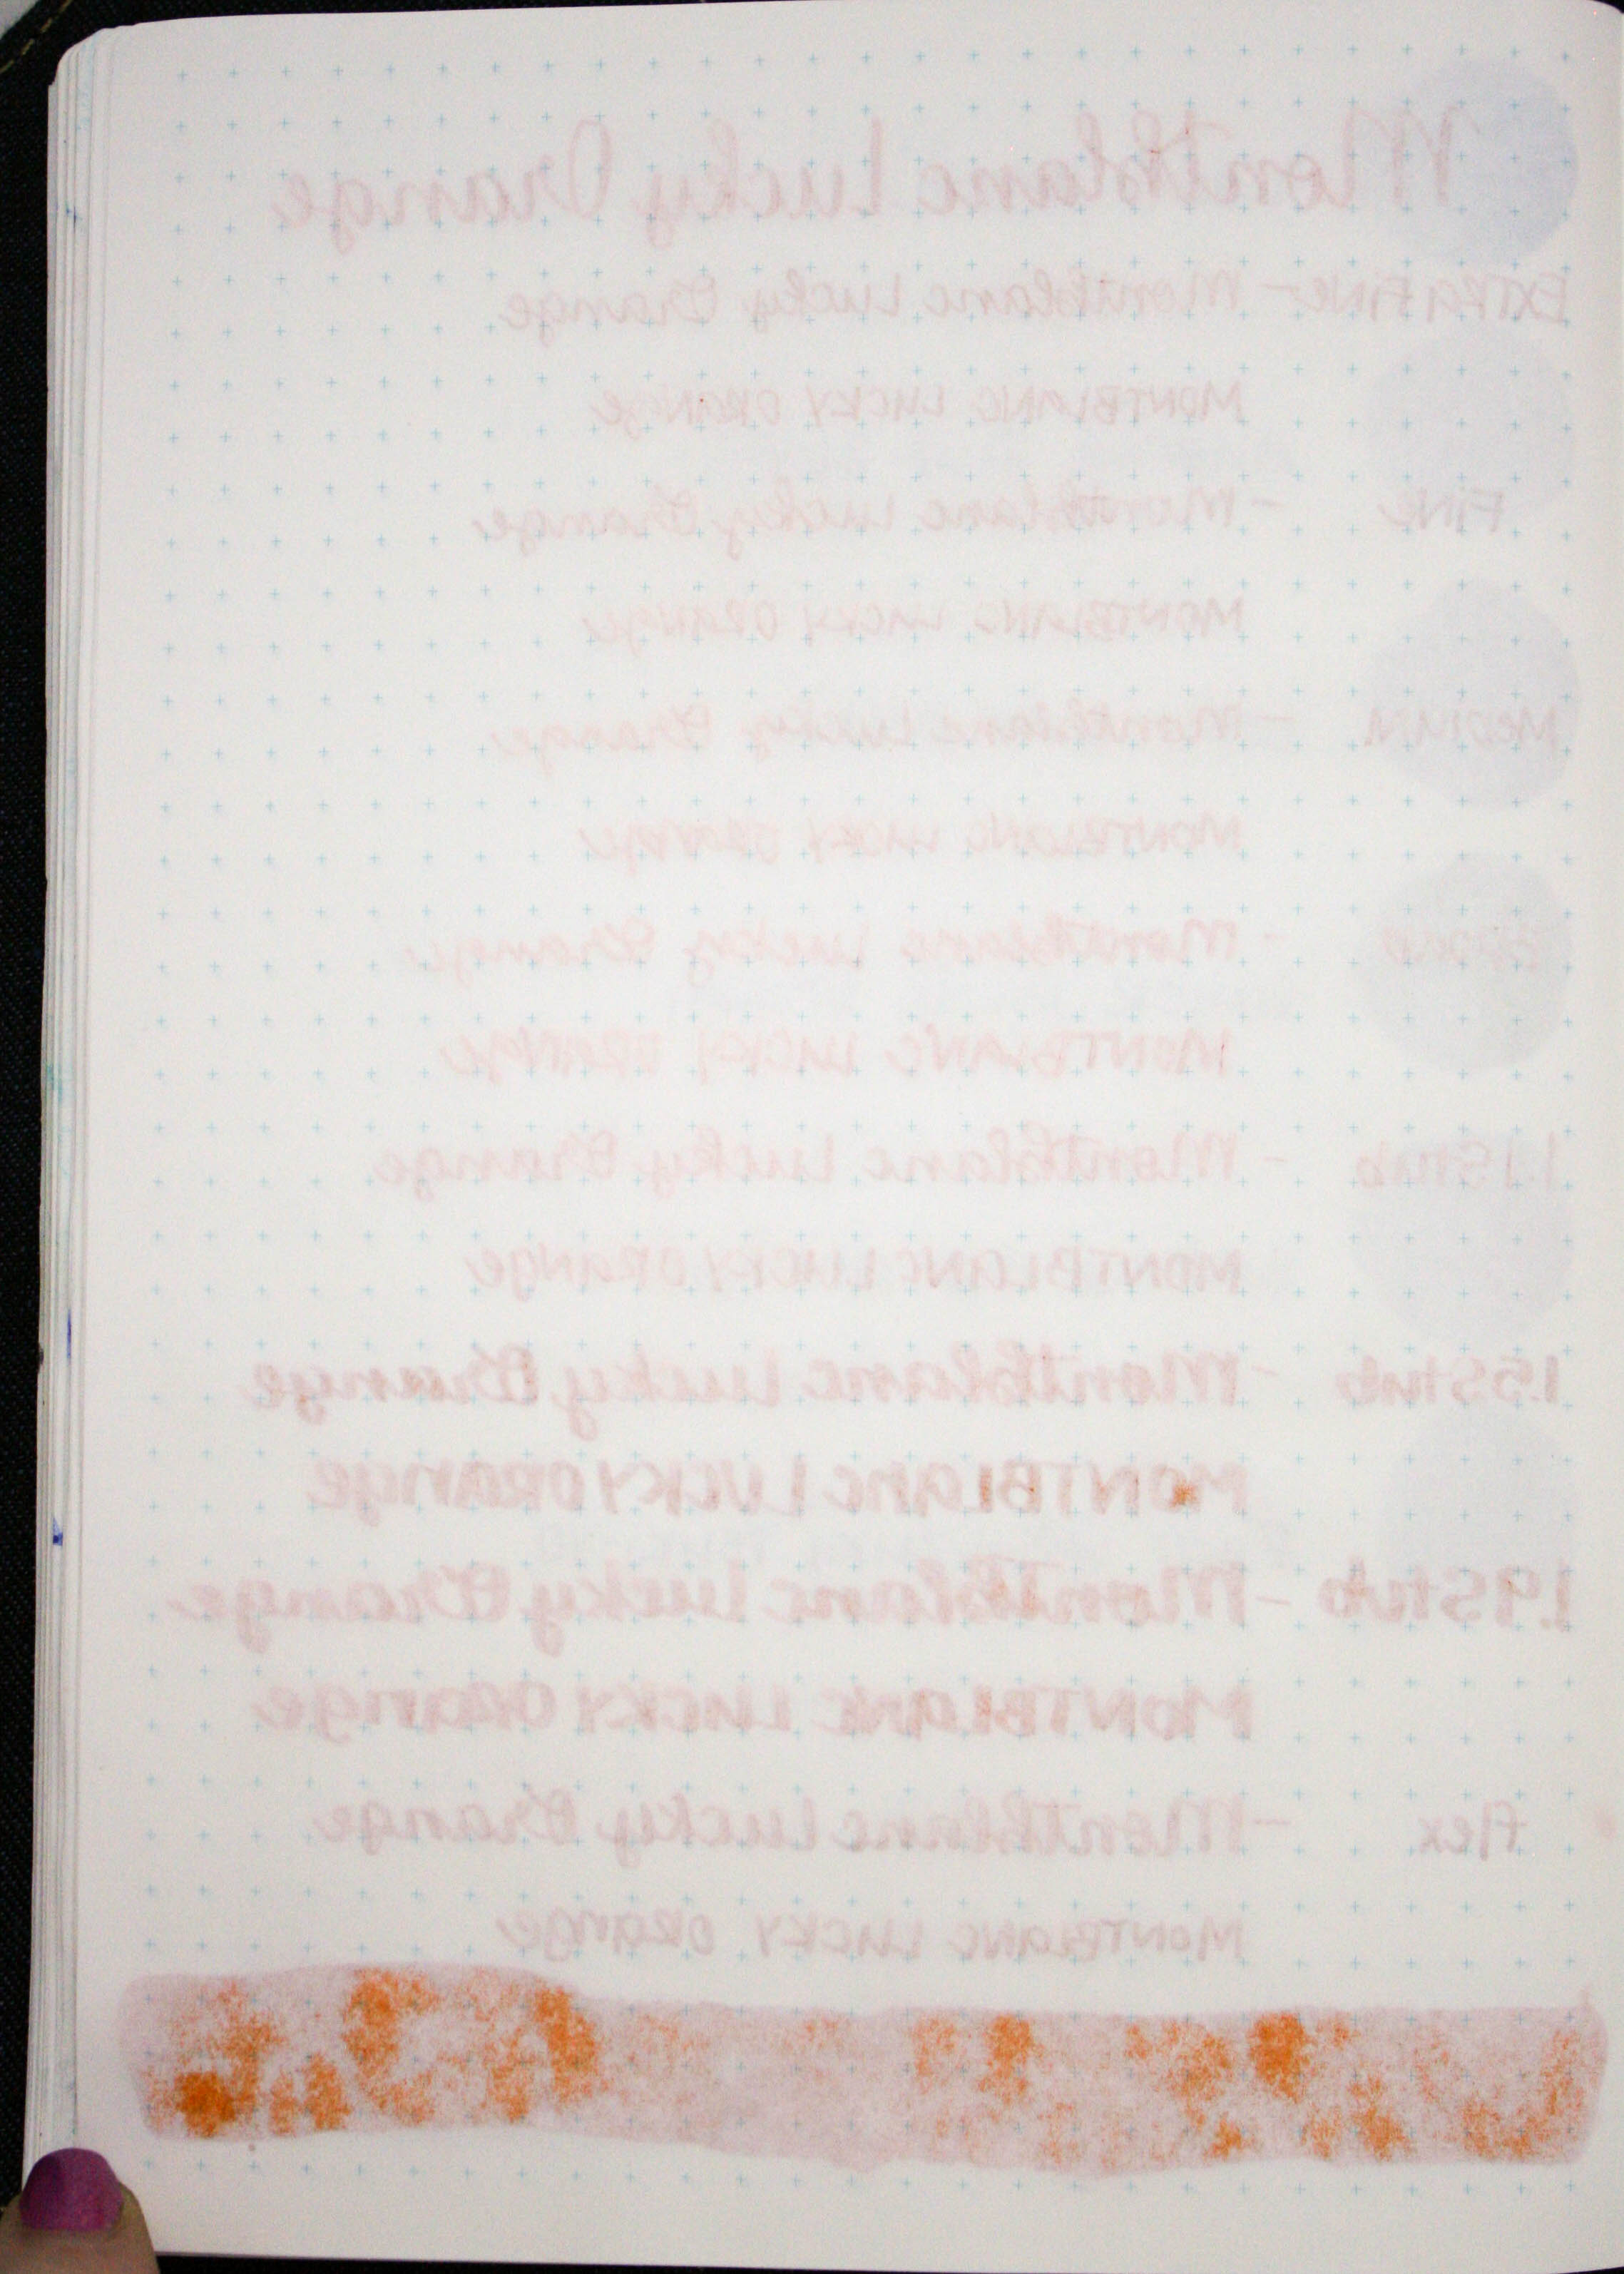 Montblanc Lucky Orange
EXTRA FINE - Montblanc Lucky Orange
MONTBLANC LUCKY ORANGE
FINE - Montblanc Lucky Orange
MONTBLANC LUCKY ORANGE
MEDIUM - Montblanc Lucky Orange
MONTBLANC LUCKY ORANGE
BROAD - Montblanc Lucky Orange
MONTBLANC LUCKY ORANGE
1.1 Stub - Montblanc Lucky Orange
MONTBLANC LUCKY ORANGE
1.5 Stub - Montblanc Lucky Orange
MONTBLANC LUCKY ORANGE
1.9 Stub - Montblanc Lucky Orange
MONTBLANC LUCKY ORANGE
Flex - Montblanc Lucky Orange
MONTBLANC LUCKY ORANGE